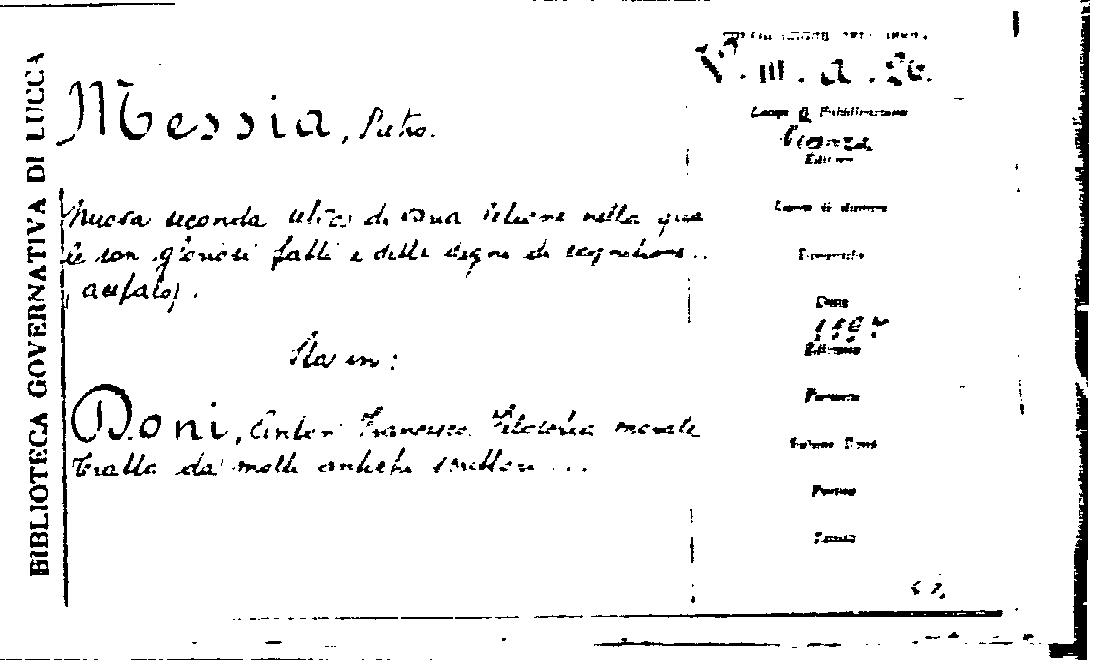 BIBLIOTECA GOVERNATIVA DI LUCCA
Messia, Pietro.
Nuova seconda selva di varia letione nella qua
le son gloriosi fatti e detti degni di cognitione..
Sta in:
Doni, Anton Francesco. Filosofia morale
tratta da molti antichi scrittori ...
V. III. a. 26.
Luogo di Pubblicazione
Vicenza
Editore
Luogo di stampa
Tipografo
Data
1597
Edizione
Formato
Volume